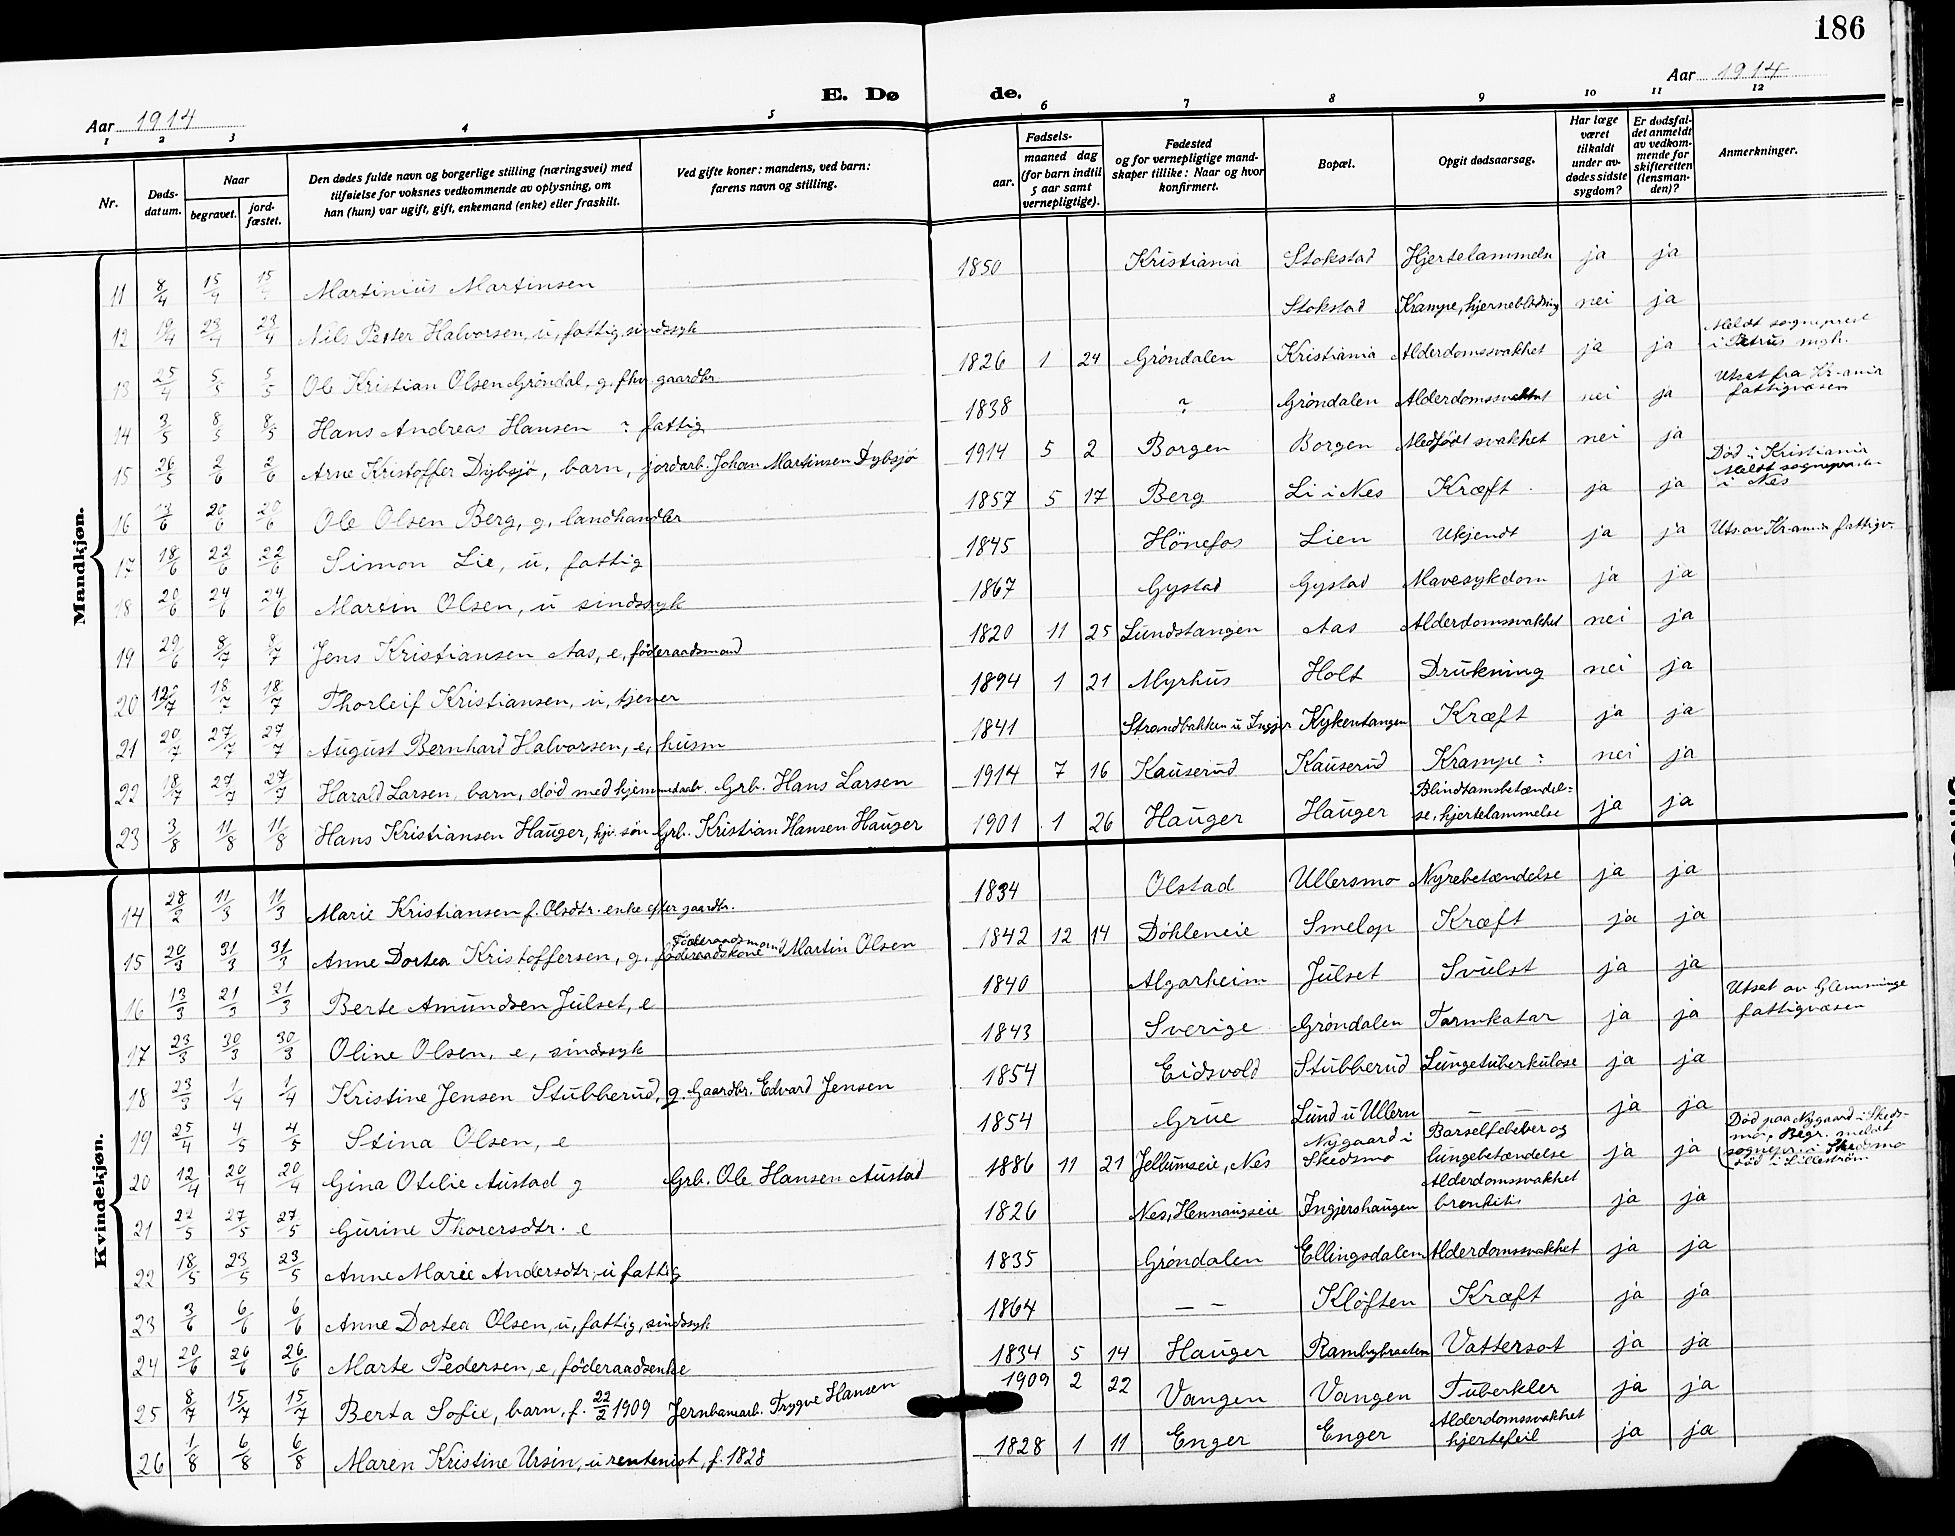 186
E. Dø de.
Aar 1914
Aar 1914
1 2 3 4 5 6 7 8 9 10 11 12
Nr.
Døds-datum.
Naar
begravet.
jord-fæstet.
Den dødes fulde navn og borgerlige stilling (næringsvei) med tilføielse for voksnes vedkommende av oplysning, om han (hun) var ugift, gift, enkemand (enke) eller fraskilt.
Ved gifte koner: mandens, ved barn: farens navn og stilling.
Fødsels-
aar.
maaned dag (for barn indtil 5 aar samt vernepligtige).
Fødested og for vernepligtige mand-skaper tillike: Naar og hvor konfirmert.
Bopæl.
Opgit dødsaarsag.
Har læge været tilkaldt under av-dødes sidste sygdom?
Er dødsfal-det anmeldt av vedkom-mende for skifteretten (lensman-den)?
Anmerkninger.
Mandkjøn.
11 8/4 15/4 15/4 Martinius Martinsen 1850 Kristiania Stokstad Hjertelammelse ja ja
12 19/4 23/4 23/4 Nils Peter Halvorsen, u, fattig, sindssyk Stokstad Krampe, hjerneblødning nei ja
13 25/4 5/5 5/5 Ole Kristian Olsen Gröndal, g. fhv. gaardbr. 1826 1 24 Gröndalen Kristiania Alderdomssvakhet ja ja Meldt sogneprest i Petrus mgh.
14 3/5 8/5 8/5 Hans Andreas Hansen ? fattig 1838 ? Gröndalen Alderdomssvakhet nei ja Utsat fra Kr-ania fattigvæsen
15 26/5 2/6 2/6 Arne Kristoffer Dybsjö, barn, jordarb. Johan Martinsen Dybsjö 1914 5 2 Borgen Borgen Medfödt svakhet nei ja
16 13/6 20/6 20/6 Ole Olsen Berg, g, landhandler 1857 5 17 Berg Li i Nes Kræft ja ja Död i Kristiania Meldt sognepresten i Nes
17 18/6 22/6 22/6 Simon Lie, u, fattig 1845 Hönefos Lien Ukjendt ja ja Uts. av Kr-ania fattigv.
18 20/6 24/6 24/6 Martin Olsen, u sindssyk 1867 Gystad Gystad Mavesykdom ja ja
19 29/6 8/7 8/7 Jens Kristiansen Aas, e, föderaadsmand 1820 11 25 Lundstangen Aas Alderdomssvakhet nei ja
20 12/7 18/7 18/7 Thorleif Kristiansen, u, tjener 1894 1 21 Myrhus Holt Drukning nei ja
21 20/7 27/7 27/7 August Bernhard Halvorsen, e, husm 1841 Strandbakken u Ingjer Kykentangen Kræft ja ja
22 18/7 27/7 27/7 Harald Larsen, barn, död med hjemmedaab. Grb. Hans Larsen 1914 7 16 Kauserud Kauserud Krampe ? nei ja
23 3/8 11/8 11/8 Hans Kristiansen Hauger, hjv. sön Grb. Kristian Hansen Hauger 1901 1 26 Hauger Hauger Blindtamsbetændel-se, hjertelammelse ja ja
Kvindekjøn.
14 28/2 11/3 11/3 Marie Kristiansen f. Olsdtr. enke efter gaardbr. 1834 Olstad Ullersmo Nyrebetændelse ja ja
15 20/3 31/3 31/3 Anne Dortea Kristoffersen, g. föderaadskone Föderaadsmand Martin Olsen 1842 12 14 Döhleneie Smelop Kræft ja ja
16 13/3 21/3 21/3 Berte Amundsen Julset, e 1840 Algarheim Julset Svulst ja ja
17 23/3 30/3 30/3 Oline Olsen, e, sindssyk 1843 Sverige Gröndalen Tarmkatar ja ja Utsat av Glemminge fattigvæsen
18 23/3 1/4 1/4 Kristine Jensen Stubberud, g. Gaardbr. Edvard Jensen 1854 Eidsvold Stubberud Lungetuberkulose ja ja
19 25/4 4/5 4/5 Stina Olsen, e 1854 Grue Lund u Ullern — — ja ja
20 12/4 20/4 20/4 Gina Otilie Austad g Grb. Ole Hansen Austad 1886 11 21 Jellumseie, Nes Nygaard i Skedsmo Barselfebeber og lungebetændelse ja ja Död paa Nygaard i Skeds-mo, Begr. meldt sognepr. i Skedsmo död i Lilleström
21 22/5 27/5 27/5 Gurine Thorersdtr. e 1826 Nes, Hennaugseie Ingjershaugen Alderdomssvakhet bronkitis ja ja
22 18/5 23/5 23/5 Anne Marie Andersdtr, u fattig 1835 Gröndalen Ellingsdalen Alderdomssvakhet ja ja
23 3/6 6/6 6/6 Anne Dortea Olsen, u, fattig, sindssyk 1864 — — Klöften Kræft ja ja
24 20/6 26/6 26/6 Marte Pedersen, e, föderaadsenke 1834 5 14 Hauger Rambybraaten Vattersot ja ja
25 8/7 15/7 15/7 Berta Sofie, barn, f. 22/2 1909 Jernbanarb. Trygve Hansen 1909 2 22 Vangen Vangen Tuberkler ja ja
26 1/8 6/8 6/8 Maren Kristine Ursin, u rentenist, f. 1828 1828 1 11 Enger Enger Alderdomssvakhet hjertefeil ja ja